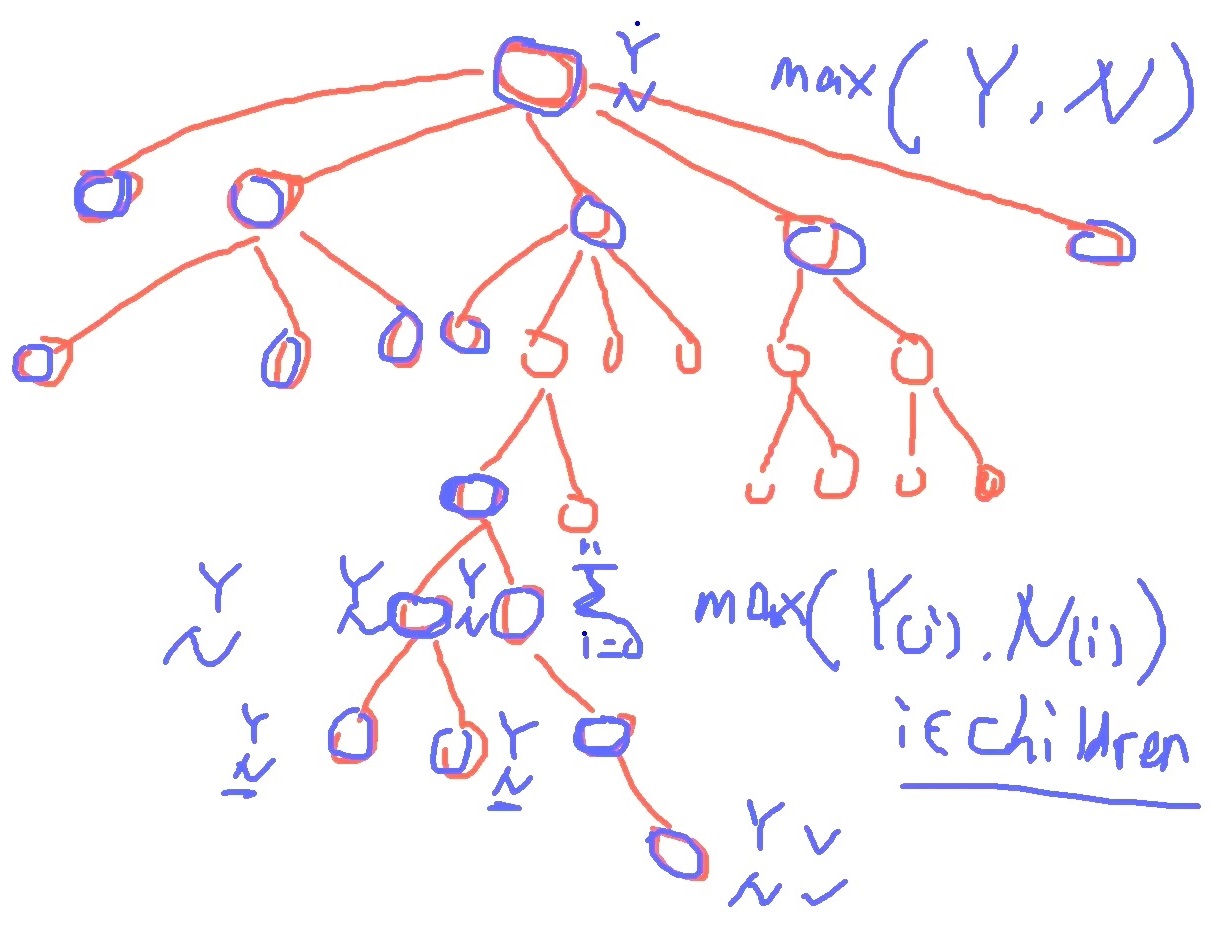 Y
N
max(Y, N)
Y
N
Y
N
Y
N
n
Σ
i=0
max(Y(i), N(i))
i∈children
Y
N
Y
N
Y ✓
N ✓